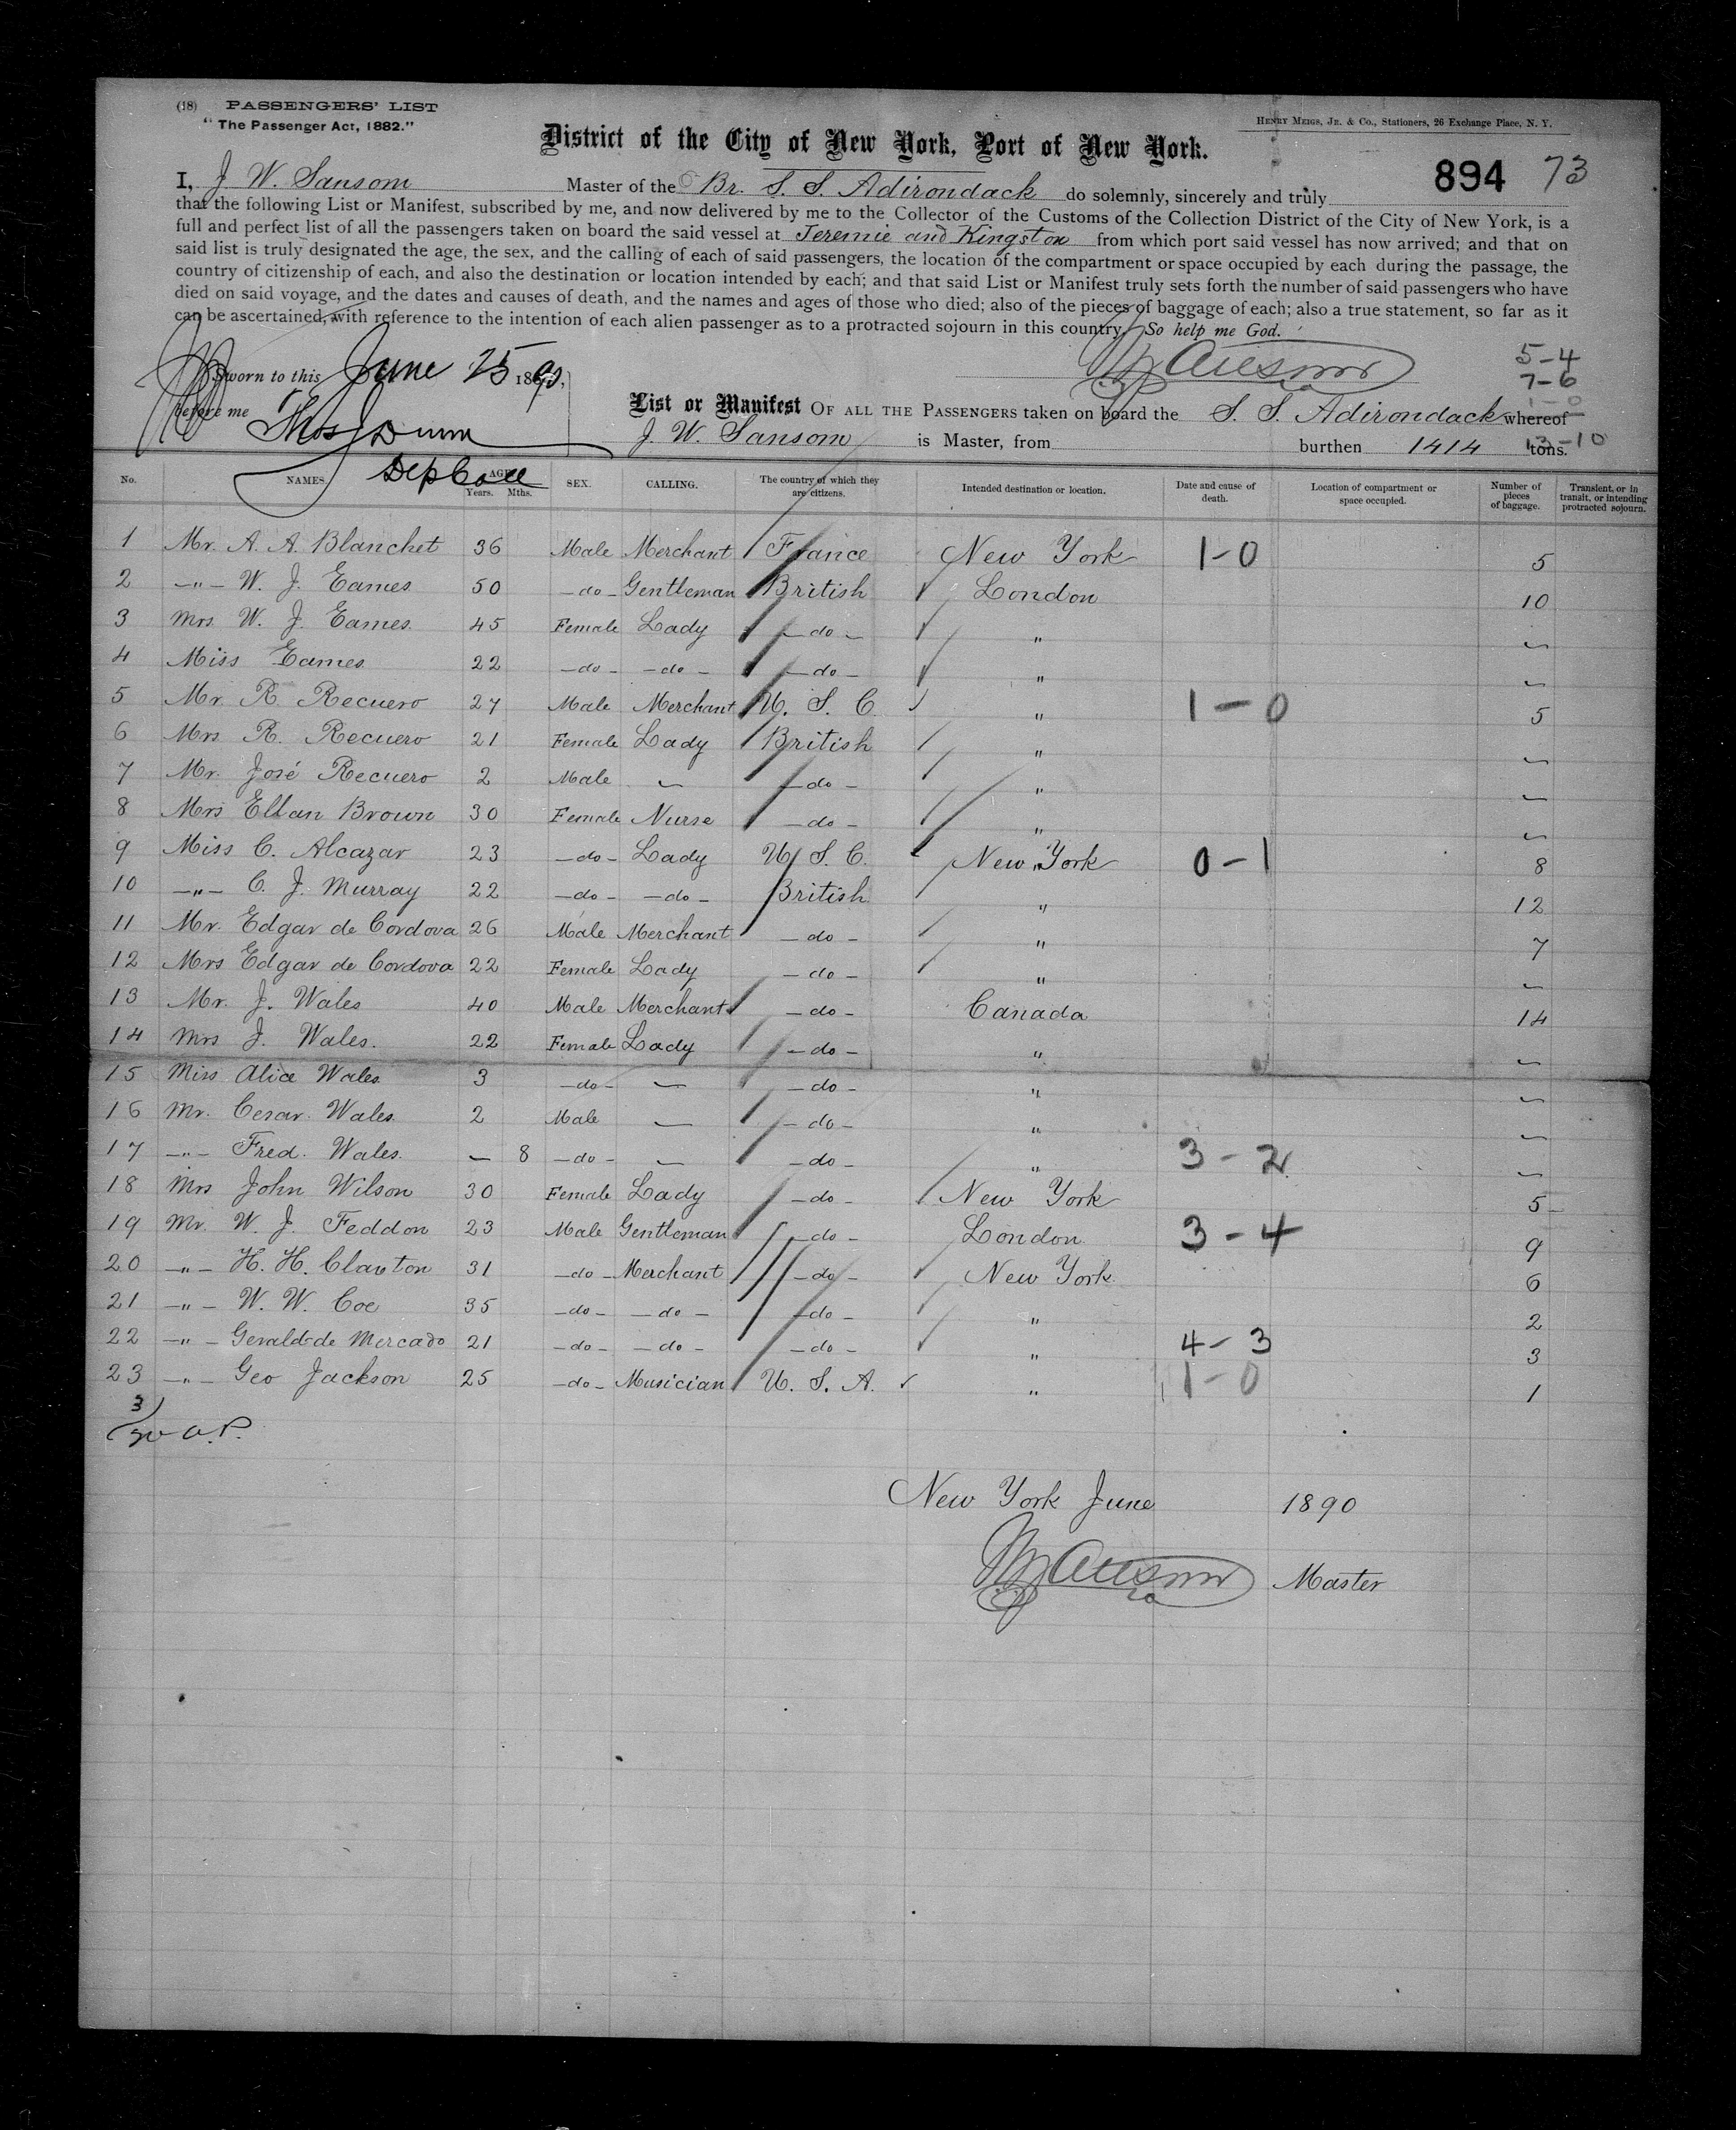 (18) PASSENGERS' LIST
"The Passenger Act, 1882."
HENRY MEIGS, JR. & CO., Stationers, 26 Exchange Place, N. Y.
District of the City of New York, Port of New York.
894 73
I, J. W. Sansom Master of the Br. S. S. Adirondack do solemnly, sincerely and truly
that the following List or Manifest, subscribed by me, and now delivered by me to the Collector of the Customs of the Collection District of the City of New York, is a
full and perfect list of all the passengers taken on board the said vessel at Jeremie and Kingston from which port said vessel has now arrived; and that on
said list is truly designated the age, the sex, and the calling of each of said passengers, the location of the compartment or space occupied by each during the passage, the
country of citizenship of each, and also the destination or location intended by each; and that said List or Manifest truly sets forth the number of said passengers who have
died on said voyage, and the dates and causes of death, and the names and ages of those who died; also of the pieces of baggage of each; also a true statement, so far as it
can be ascertained, with reference to the intention of each alien passenger as to a protracted sojourn in this country. So help me God.
5-4
7-6
1-0
13-10
Sworn to this June 25 1890,
before me Thos J Dunn
Dep Coll
List or Manifest OF ALL THE PASSENGERS taken on board the S. S. Adirondack whereof
J. W. Sansom is Master, from burthen 1414 tons.
No. NAMES. AGE. Years. Mths. SEX. CALLING. The country of which they are citizens. Intended destination or location. Date and cause of death. Location of compartment or space occupied. Number of pieces of baggage. Transient, or in transit, or intending protracted sojourn.
1 Mr. A. A. Blanchet 36 Male Merchant France New York 1-0 5
2 -"- W. J. Eames 50 -do- Gentleman British London 10
3 Mrs. W. J. Eames 45 Female Lady -do- " -
4 Miss Eames 22 -do- -do- -do- " -
5 Mr. R. Recuero 27 Male Merchant U. S. C. " 1-0 5
6 Mrs R. Recuero 21 Female Lady British " -
7 Mr. José Recuero 2 Male - -do- " -
8 Mrs Ellan Brown 30 Female Nurse -do- " -
9 Miss C. Alcazar 23 -do- Lady U. S. C. New York 0-1 8
10 -"- C. J. Murray 22 -do- -do- British " 12
11 Mr. Edgar de Cordova 26 Male Merchant -do- " 7
12 Mrs Edgar de Cordova 22 Female Lady -do- " -
13 Mr. J. Wales 40 Male Merchant -do- Canada 14
14 Mrs J. Wales. 22 Female Lady -do- " -
15 Miss Alice Wales 3 -do- - -do- " -
16 Mr. Cesar Wales 2 Male - -do- " -
17 -"- Fred. Wales. - 8 -do- - -do- " 3-2 -
18 Mrs John Wilson 30 Female Lady -do- New York 5
19 Mr. W. J. Feddon 23 Male Gentleman -do- London 3-4 9
20 -"- H. H. Clanton 31 -do- Merchant -do- New York 6
21 -"- W. W. Coe 35 -do- -do- -do- " 2
22 -"- Gerald de Mercado 21 -do- -do- -do- " 4-3 3
23 -"- Geo Jackson 25 -do- Musician U. S. A. " 1-0 1
3
New York June 1890
Master